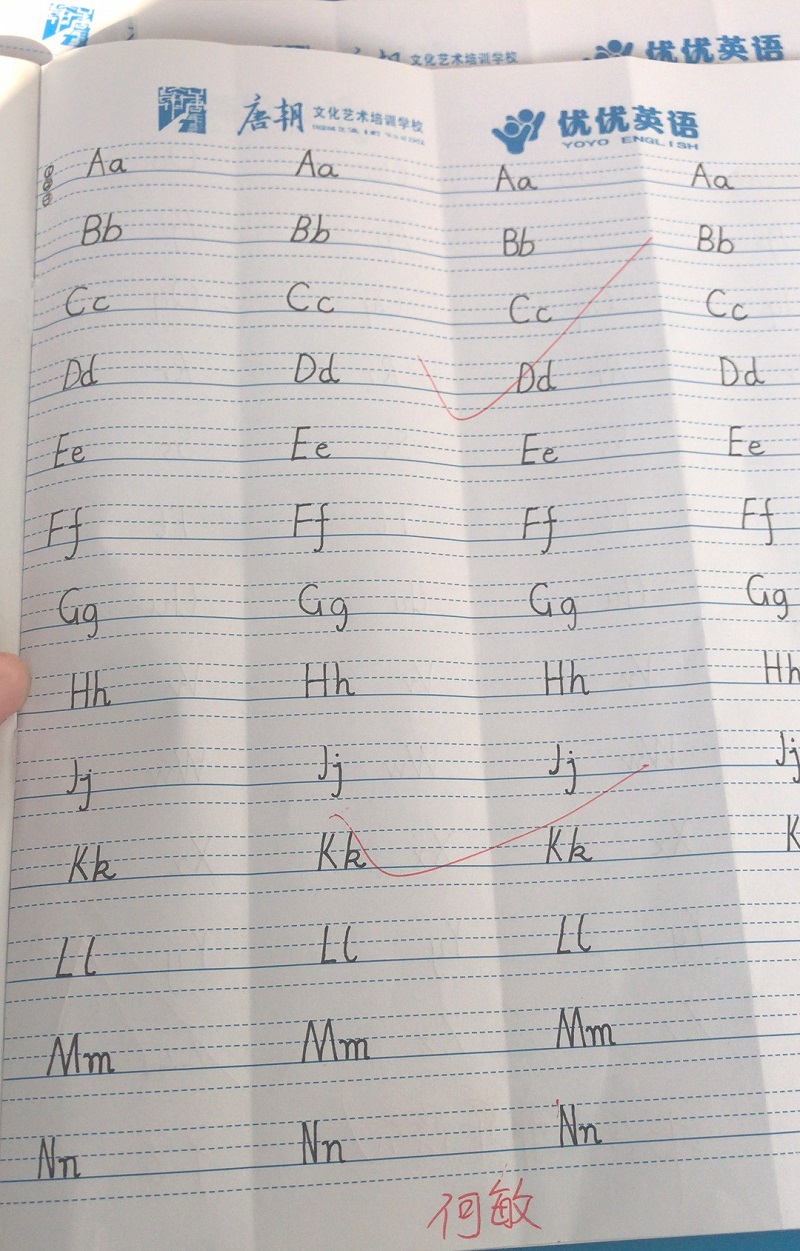 文化艺术培训学校 优优英语
唐朝 文化艺术培训学校 优优英语
YOYO ENGLISH
Aa Aa Aa Aa
Bb Bb Bb Bb
Cc Cc Cc Cc
Dd Dd Dd Dd
Ee Ee Ee Ee
Ff Ff Ff Ff
Gg Gg Gg Gg
Hh Hh Hh Hh
Jj Jj Jj Jj
Kk Kk Kk K
Ll Ll Ll
Mm Mm Mm
Nn Nn Nn
何敏